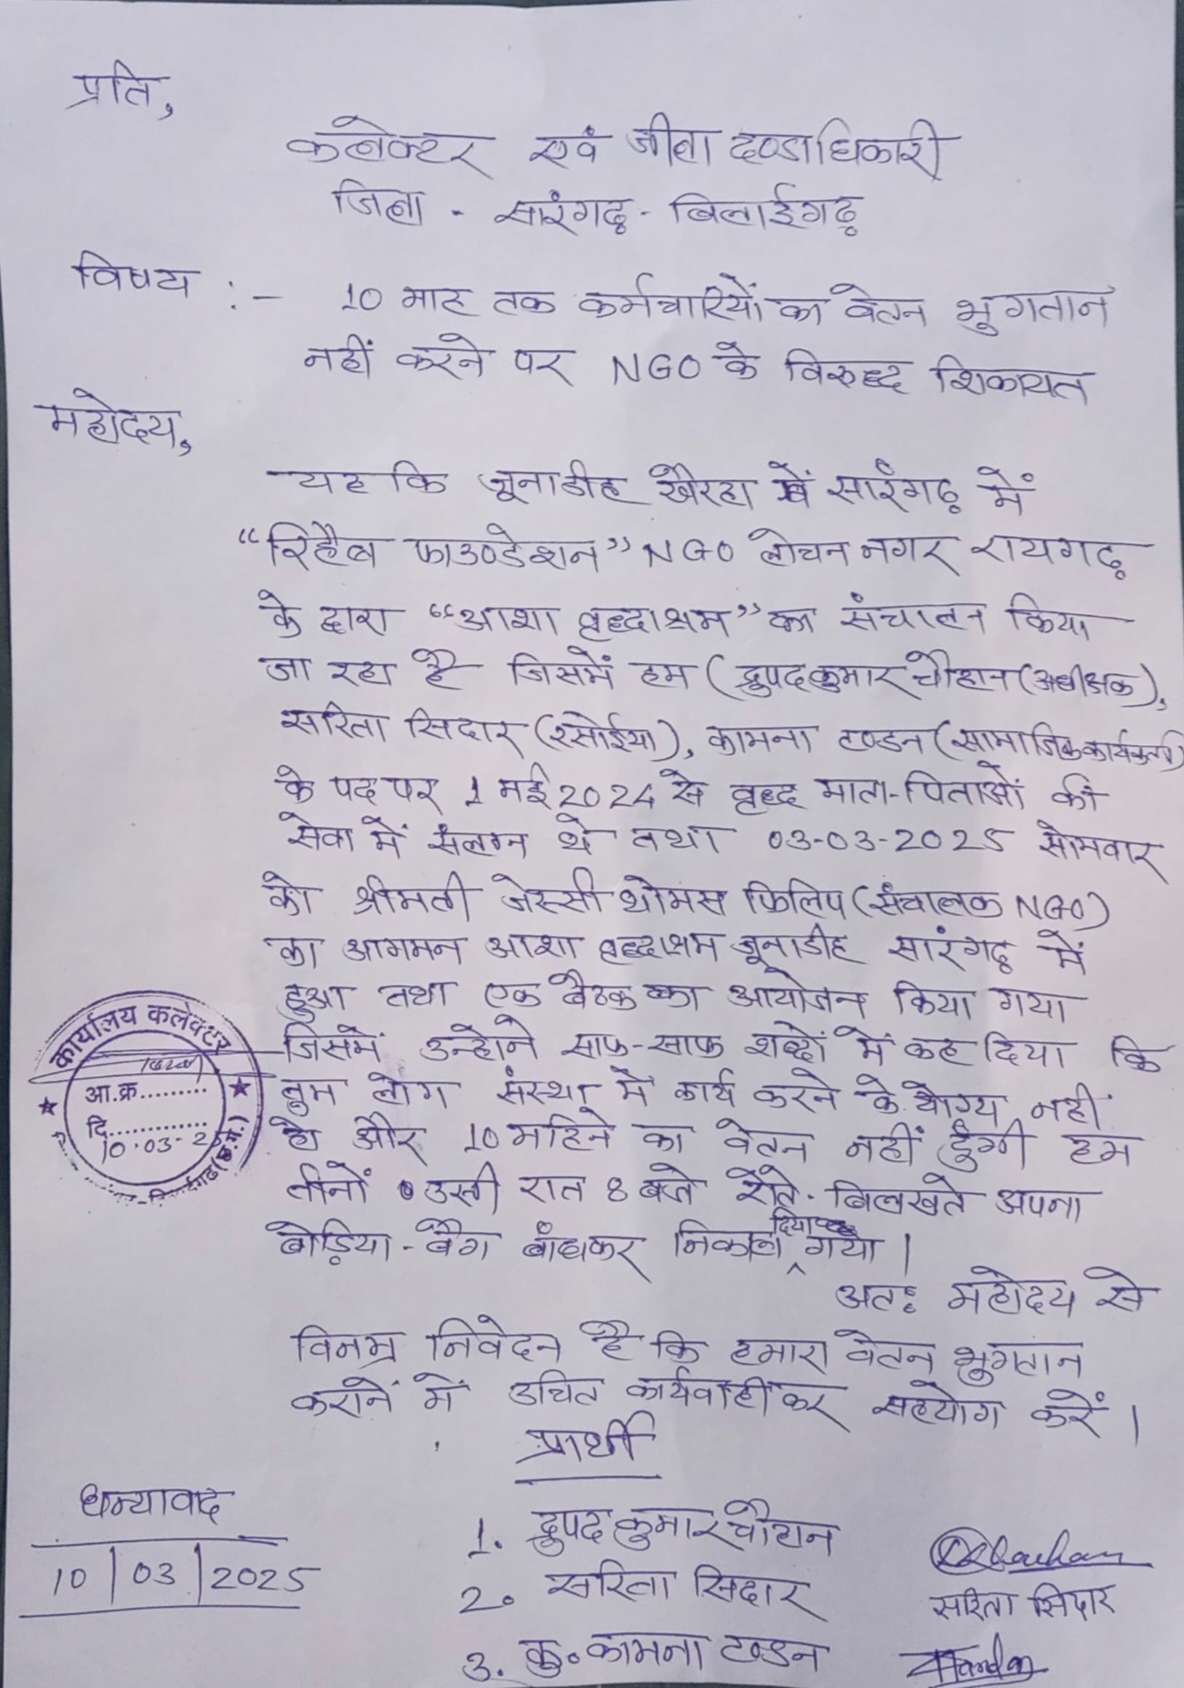 प्रति,
कलेक्टर एवं जीला दण्डाधिकारी
जिला - सारंगढ़ - बिलाईगढ़
विषय :- 10 माह तक कर्मचारियों का वेतन भुगतान
नहीं करने पर NGO के विरुद्ध शिकायत
महोदय,
यह कि जूनाडीह खैरहा में सारंगढ़ में
"रिहैब फाउण्डेशन" NGO लोचन नगर रायगढ़
के द्वारा "आशा वृद्धाश्रम" का संचालन किया
जा रहा है जिसमें हम (द्रुपद कुमार चौहान (अधीक्षक),
सरिता सिदार (रसोईया), कामना टण्डन (सामाजिक कार्यकर्ता)
के पद पर 1 मई 2024 से वृद्ध माता-पिताओं की
सेवा में संलग्न थे तथा 03-03-2025 सोमवार
को श्रीमती जेस्सी थोमस फिलिप (संचालक NGO)
का आगमन आशा वृद्धाश्रम जूनाडीह सारंगढ़ में
हुआ तथा एक बैठक का आयोजन किया गया
जिसमें उन्होने साफ-साफ शब्दों में कह दिया कि
तुम लोग संस्था में कार्य करने के योग्य नहीं
हो और 10 महिने का वेतन नहीं दुंगी हम
तीनों उसी रात 8 बजे रोते-बिलखते अपना
बोड़िया-बैग बांधकर निकाल दिया गया |
अतः महोदय से
विनम्र निवेदन है कि हमारा वेतन भुगतान
कराने में उचित कार्यवाही कर सहयोग करें |
प्रार्थी
1. द्रुपद कुमार चौहान
2. सरिता सिदार सरिता सिदार
3. कु. कामना टण्डन
धन्यवाद
10/03/2025
कार्यालय कलेक्टर
आ.क्र.
दि.
10.03-2